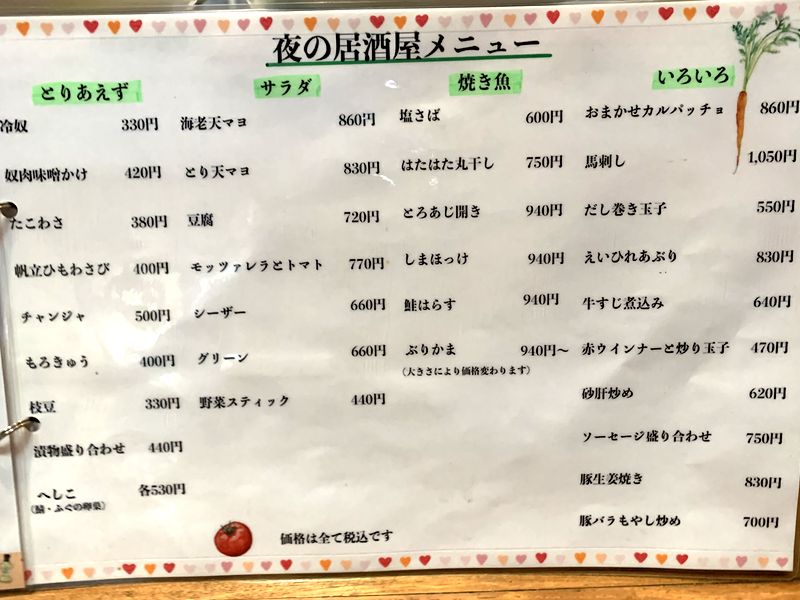 夜の居酒屋メニュー
とりあえず
冷奴 330円
奴肉味噌かけ 420円
たこわさ 380円
帆立ひもわさび 400円
チャンジャ 500円
もろきゅう 400円
枝豆 330円
漬物盛り合わせ 440円
へしこ 各530円
(鯖・ふぐの卵巣)
サラダ
海老天マヨ 860円
とり天マヨ 830円
豆腐 720円
モッツァレラとトマト 770円
シーザー 660円
グリーン 660円
野菜スティック 440円
焼き魚
塩さば 600円
はたはた丸干し 750円
とろあじ開き 940円
しまほっけ 940円
鮭はらす 940円
ぶりかま 940円〜
(大きさにより価格変わります)
いろいろ
おまかせカルパッチョ 860円
馬刺し 1,050円
だし巻き玉子 550円
えいひれあぶり 830円
牛すじ煮込み 640円
赤ウインナーと炒り玉子 470円
砂肝炒め 620円
ソーセージ盛り合わせ 750円
豚生姜焼き 830円
豚バラもやし炒め 700円
価格は全て税込です